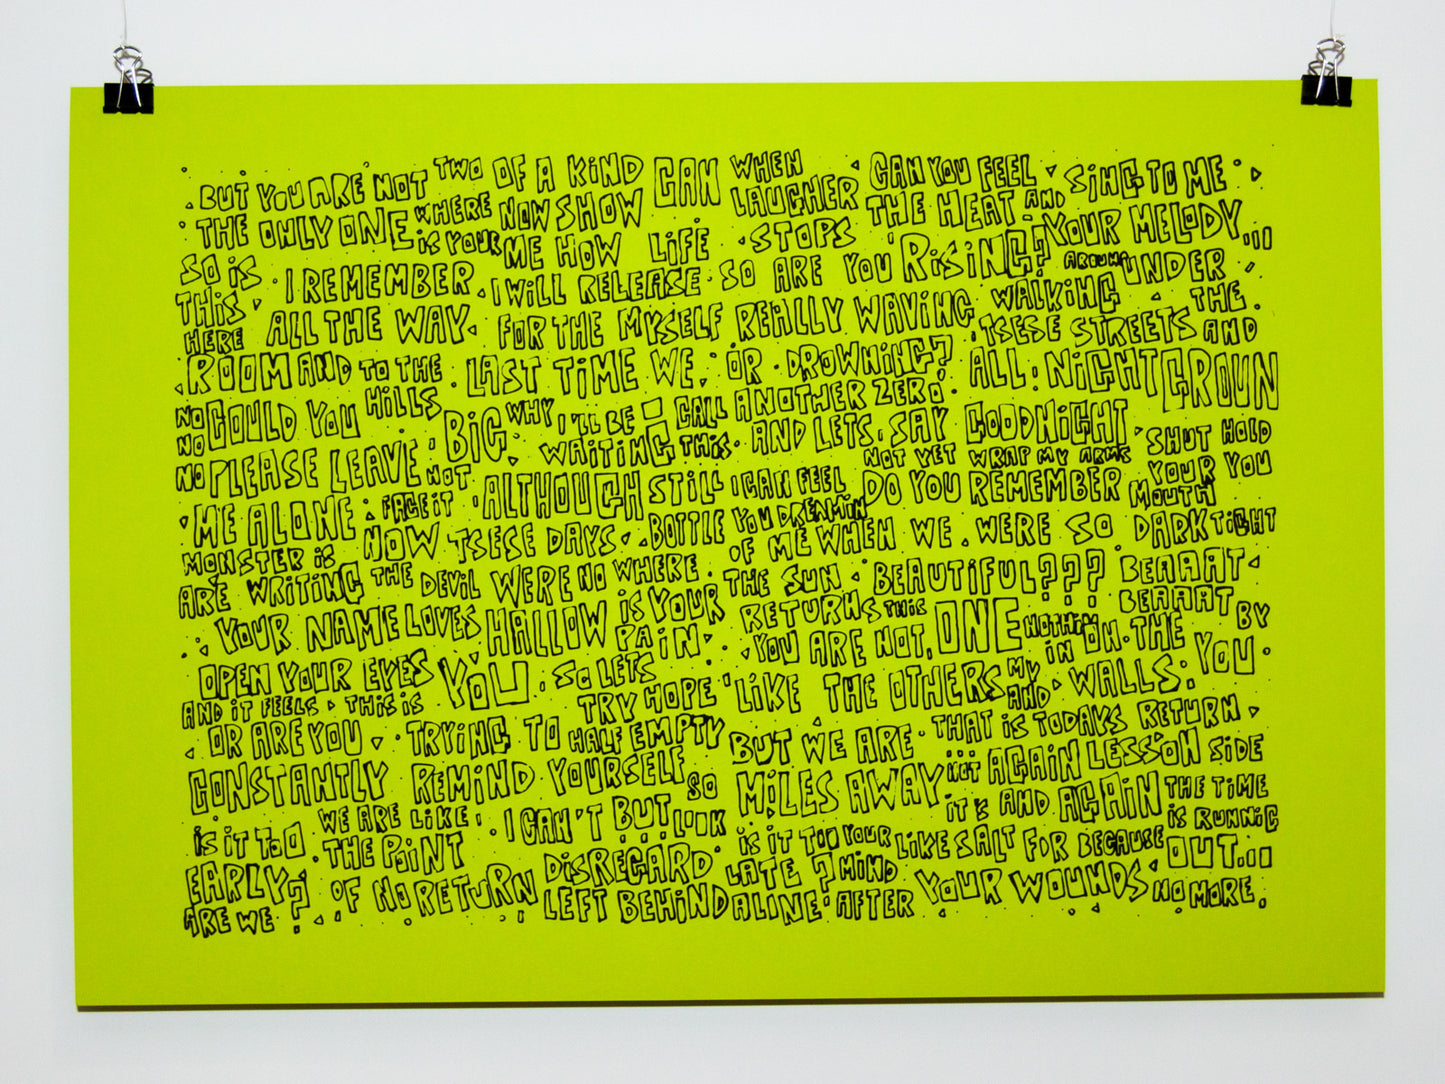 BUT YOU ARE NOT TWO OF A KIND CAN WHEN CAN YOU FEEL SING TO ME
THE ONLY ONE WHERE NOW SHOW LAUGHER THE HEAT AND YOUR MELODY...
SO IS I REMEMBER IS YOUR ME HOW LIFE STOPS RISING? AROUND UNDER
THIS I WILL RELEASE SO ARE YOU WALKING THE
HERE ALL THE WAY FOR THE MYSELF REALLY WAVING TSESE STREETS AND
ROOM AND TO THE LAST TIME WE. OR DROWNING? ALL NIGHT GROUN
NO COULD YOU HILLS BIG WHY I'LL BE CALL ANOTHER ZERO GOODNIGHT
NO WAITING THIS AND LETS SAY SHUT HOLD
NO PLEASE LEAVE NOT ALTHOUGH STILL I CAN FEEL NOT YET WRAP MY ARMS YOUR YOU
ME ALONE FACE IT DO YOU REMEMBER MOUTH
MONSTER IS NOW TSESE DAYS BOTTLE YOU DREAMIN OF ME WHEN WE WERE SO DARK TIGHT
ARE WRITING THE DEVIL WERE NO WHERE THE SUN BEAUTIFUL??? BEAAAT
YOUR NAME LOVES HALLOW IS YOUR RETURNS THIS ONE NOTHIN ON THE BEAAAT BY
OPEN YOUR EYES YOU SO LETS PAIN YOU ARE NOT, IN WALLS. YOU
AND IT FEELS THIS IS TRY HOPE LIKE THE OTHERS MY AND
OR ARE YOU TRYING TO HALF EMPTY BUT WE ARE THAT IS TODAYS RETURN
CONSTANTLY REMIND YOURSELF SO MILES AWAY NOT AGAIN LESSON SIDE
WE ARE LIKE I CAN'T BUT LOOK IT'S AND AGAIN THE TIME
IS IT TOO THE POINT DISREGARD IS IT TOO YOUR LIKE SALT FOR BECAUSE IS RUNNIG
EARLY? OF NO RETURN LATE? MIND OUT...
ARE WE LEFT BEHIND ALINE AFTER YOUR WOUNDS NO MORE.